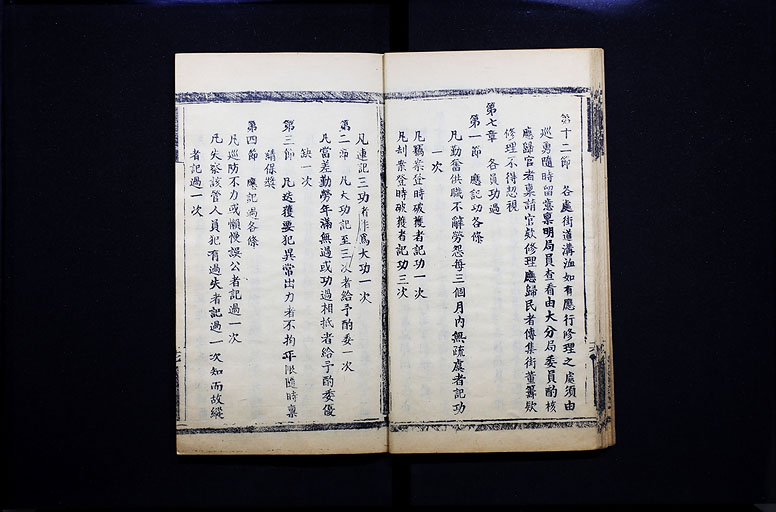 第十二節　各處街道溝洫如有應行修理之處須由
巡勇隨時留意稟明局員查看由大分局委員酌核
應歸官者稟請官欵修理應歸民者傳集街董籌欵
修理不得恝視
第七章　各員功過
第一節　應記功各條
凡勤奮供職不辭勞怨每三個月內無疏虞者記功
一次
凡竊案登時破獲者記功一次
凡刦案登時破獲者記功三次
凡連記三功者作爲大功一次
第二節　凡大功記至三次者給予酌委一次
凡當差勤勞年滿無過或功過相抵者給予酌委優
缺一次
第三節　凡迭獲要犯異常出力者不拘年限隨時稟
請保獎
第四節　應記過各條
凡巡防不力或懶惰誤公者記過一次
凡失察該管人員犯有過失者記過一次知而故縱
者記過一次